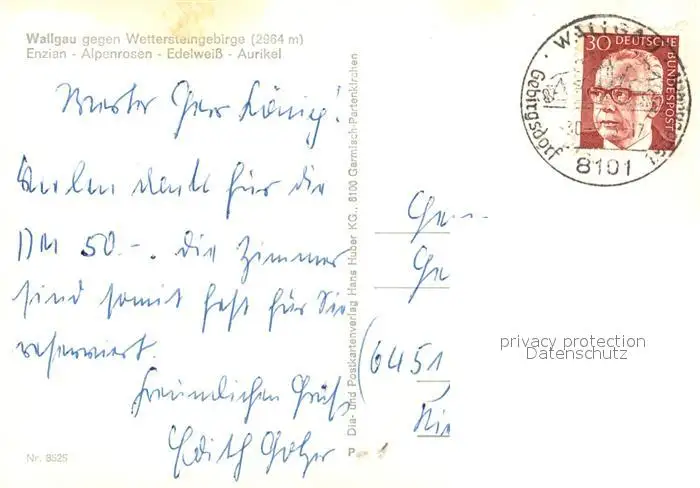 Wallgau gegen Wettersteingebirge (2964 m)
Enzian - Alpenrosen - Edelweiß - Aurikel
Werter Herr König!
Vielen Dank für die
DM 50.-. die Zimmer
sind somit fest für Sie
reserviert.
Freundlichen Gruß
Edith
Nr. 8525
Dia- und Postkartenverlag Hans Huber KG., 8100 Garmisch-Partenkirchen
(6451
30 DEUTSCHE
BUNDESPOST
WALLGAU
Gebirgsdorf
8101
privacy protection
Datenschutz